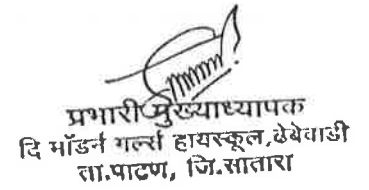 प्रभारी मुख्याध्यापक
दि मॉडर्न गर्ल्स हायस्कूल,ढेबेवाडी
ता.पाटण, जि.सातारा